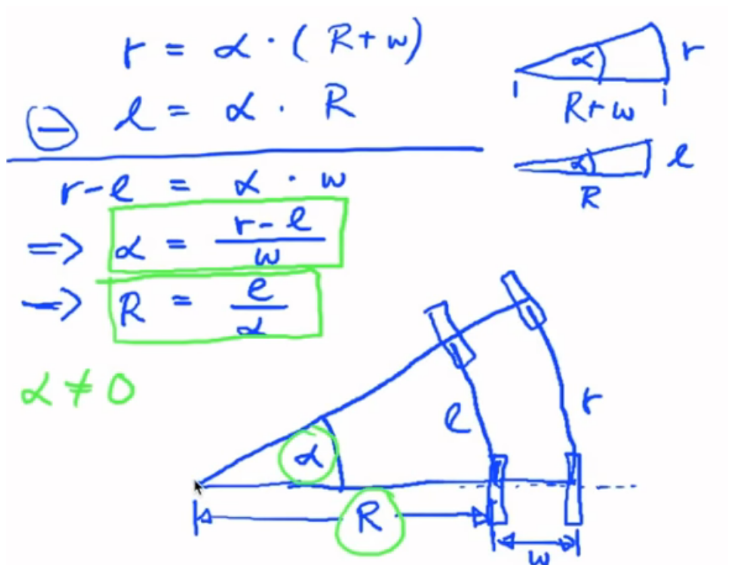 r = α · ( R + w )
⊖ l = α · R
r - l = α · w
=> α = r - l / w
-> R = l / α
α ≠ 0
α r
R + w
α l
R
α
l r
R
w